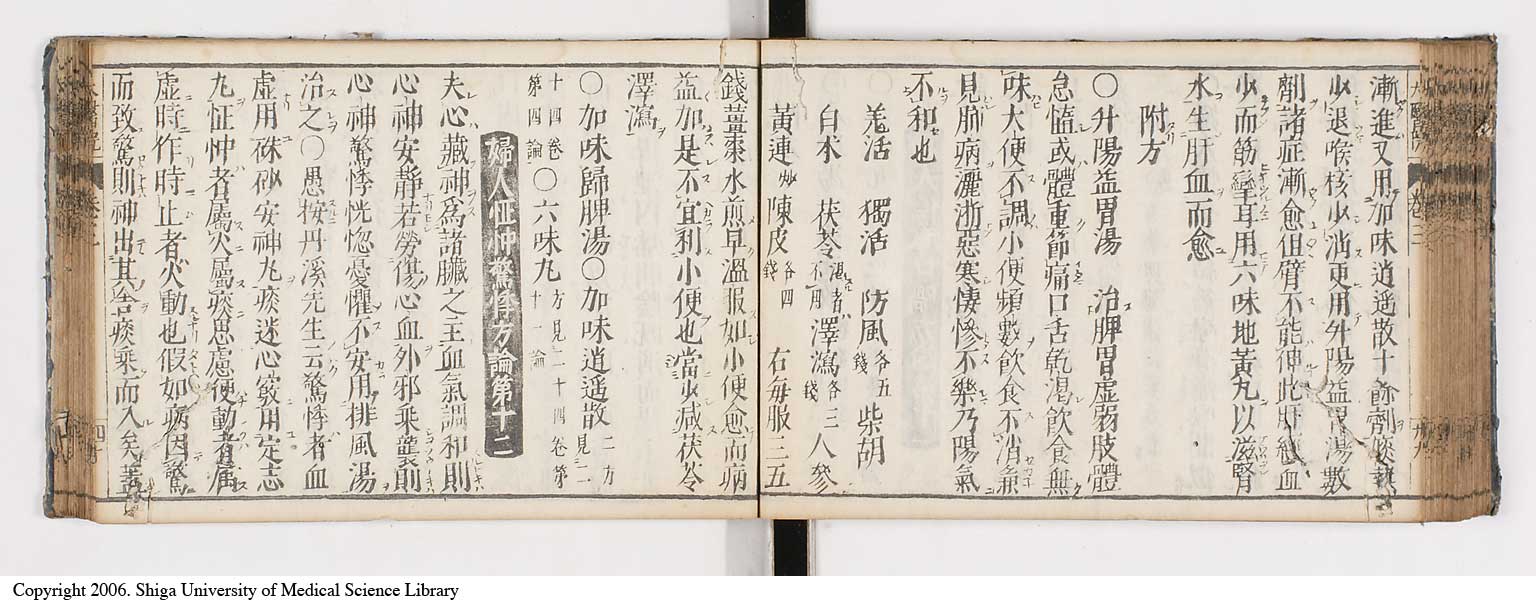 漸進又用加味逍遥散十餘劑痰熱
少退喉核少消更用升陽益胃湯數
劑諸症漸愈但臂不能伸此肝經血
少而筋攣耳用六味地黃丸以滋腎
水生肝血而愈
附方
○升陽益胃湯 治脾胃虛弱肢體
怠惰或體重節痛口舌乾渴飲食無
味大便不調小便頻數飲食不消兼
見肺病灑淅惡寒悽慘不樂乃陽氣
不和也
羗活 獨活 防風各五錢 柴胡
白朮 茯苓渴者不用 澤瀉各三錢 人參
黃連炒 陳皮各四錢 右每服三五
錢薑棗水煎早溫服如小便愈而病
益加是不宜利小便也當少減茯苓
澤瀉
○加味歸脾湯○加味逍遥散二方見二
十四卷第四論 ○六味丸方見二十四卷第十一論
婦人怔忡驚悸方論第十二
夫心藏神爲諸臟之主血氣調和則
心神安靜若勞傷心血外邪乘襲則
心神驚悸恍惚憂懼不安用排風湯
治之○愚按丹溪先生云驚悸者血
虛用硃砂安神丸痰迷心竅用定志
丸怔忡者屬火屬痰思慮便動者屬
虛時作時止者火動也假如病因驚
而致驚則神出其舍痰乘而入矣
卷三
Copyright 2006. Shiga University of Medical Science Library